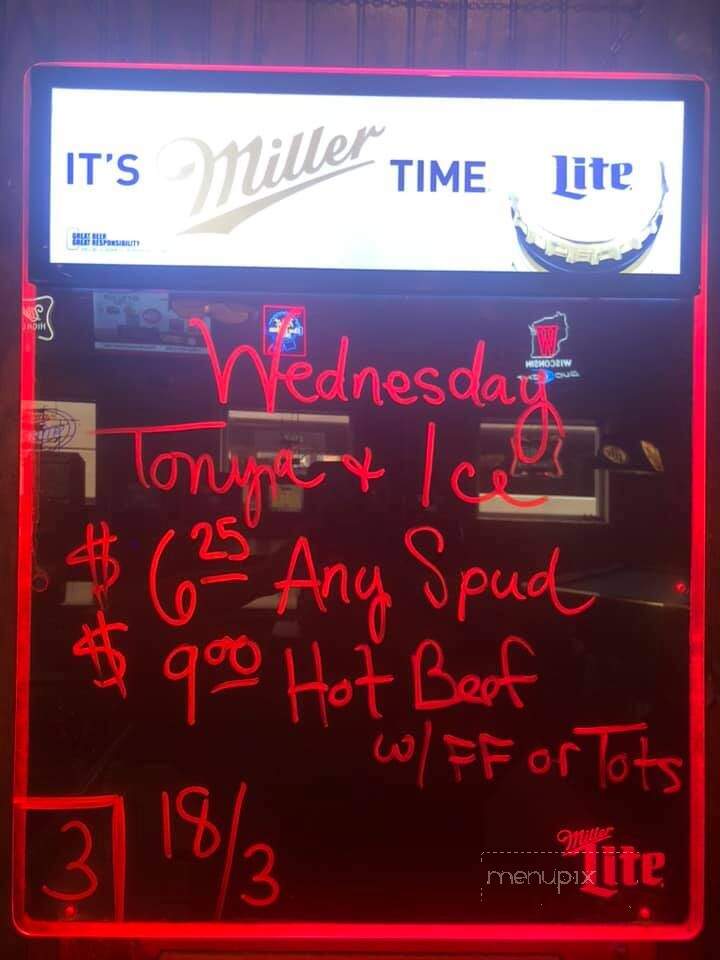 IT'S Miller TIME Lite
GREAT BEER
GREAT RESPONSIBILITY
Wednesday
WISCONSIN
Tonya & Ice
$ 6.25 Any Spud
$ 9.00 Hot Beef
w/ FF or Tots
3 18/3
Miller Lite
menupix